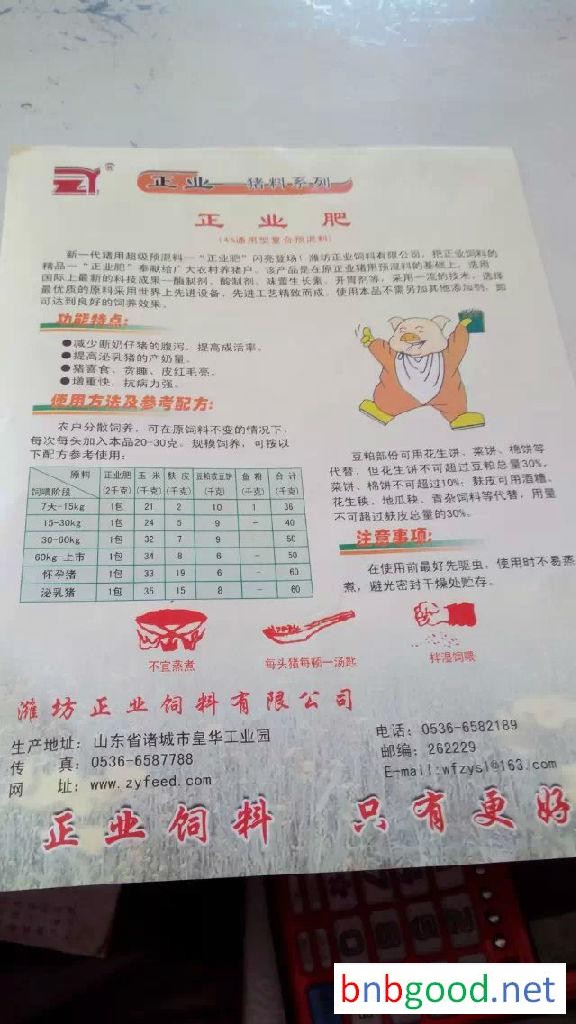 ZY ®
正业 猪料系列
正业肥
(4%通用型复合预混料)
新一代猪用超级预混料—“正业肥”闪亮登场！潍坊正业饲料有限公司，把正业饲料的
精品—“正业肥”奉献给广大农村养猪户。该产品是在原正业猪用预混料的基础上，选用
国际上最新的科技成果—酶制剂、酸制剂、珠蕾生长素、开胃剂等，采用一流的技术，选择
最优质的原料采用世界上先进设备、先进工艺精致而成。使用本品不需另加其他添加剂，即
可达到良好的饲养效果。
功能特点:
●减少断奶仔猪的腹泻，提高成活率。
●提高泌乳猪的产奶量。
●猪喜食、贪睡、皮红毛亮。
●增重快，抗病力强。
使用方法及参考配方:
农户分散饲养，可在原饲料不变的情况下，
每次每头加入本品20-30克。规模饲养，可按以
下配方参考使用:
原料 正业肥 玉米 麸皮 豆粕或豆饼 鱼粉 合计
饲喂阶段 (2千克) (千克) (千克) (千克) (千克) (千克)
7天-15kg 1包 21 2 10 1 36
15-30kg 1包 24 5 9 - 40
30-60kg 1包 32 7 9 50
60kg 上市 1包 34 8 6 - 50
怀孕猪 1包 33 19 6 - 60
泌乳猪 1包 35 15 8 - 60
豆粕部份可用花生饼、菜饼、棉饼等
代替，但花生饼不可超过豆粕总量30%，
菜饼、棉饼不可超过10%；麸皮可用酒糟、
花生秧、地瓜秧、青杂饲料等代替，用量
不可超过麸皮总量的30%。
注意事项:
在使用前最好先驱虫，使用时不易蒸
煮，避光密封干燥处贮存。
不宜蒸煮
每头猪每顿一汤匙
拌湿饲喂
潍坊正业饲料有限公司
生产地址: 山东省诸城市皇华工业园
传 真: 0536-6587788
网 址: www.zyfeed.com
电话: 0536-6582189
邮编: 262229
E-mail:wfzysl@163.com
正业饲料 只有更好
bnbgood.net